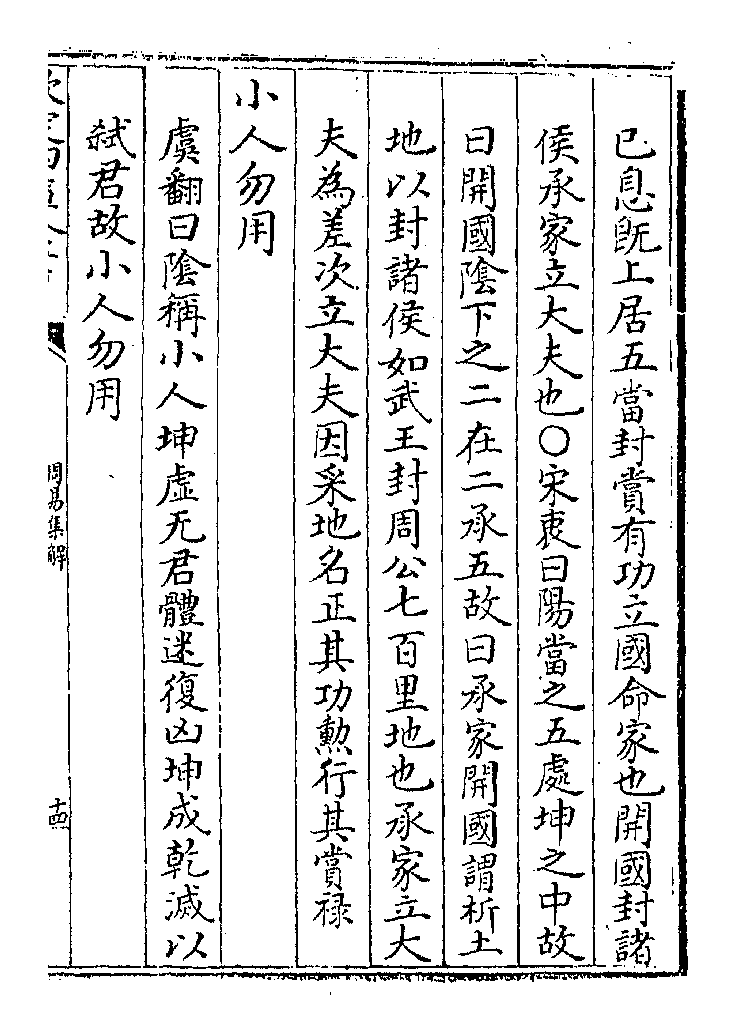 已息既上居五當封賞有功立國命家也開國封諸
侯承家立大夫也○宋衷曰陽當之五處坤之中故
曰開國陰下之二在二承五故曰承家開國謂析土
地以封諸侯如武王封周公七百里地也承家立大
夫為差次立大夫因采地名正其功勲行其賞禄
小人勿用
虞翻曰陰稱小人坤虛无君體迷復凶坤成乾滅以
弑君故小人勿用
周易集解
十四